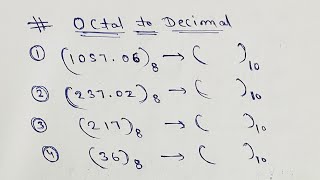 # Octal to Decimal
① (1057.06)₈ → ( )₁₀
② (237.02)₈ → ( )₁₀
③ (217)₈ → ( )₁₀
④ (36)₈ → ( )₁₀